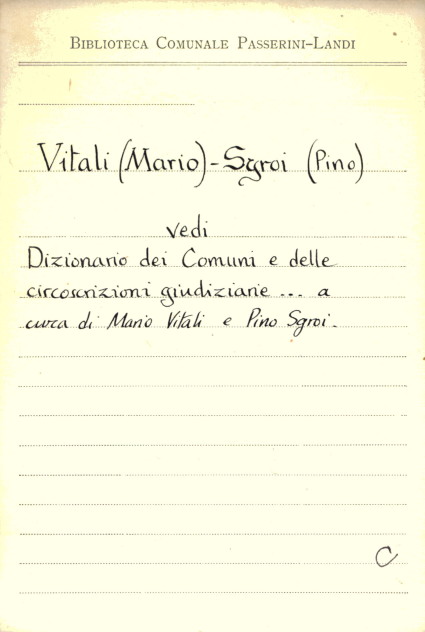 Biblioteca Comunale Passerini-Landi
Vitali (Mario) - Sgroi (Pino)
vedi
Dizionario dei Comuni e delle
circoscrizioni giudiziarie ... a
cura di Mario Vitali e Pino Sgroi.
C